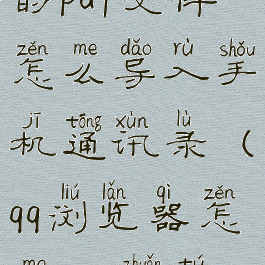 的pdf文件
zěn me dǎo rù shǒu
怎么导入手
jī tōng xùn lù
机通讯录（
liú lǎn qì zěn
qq浏览器怎
me zhuǎn tú